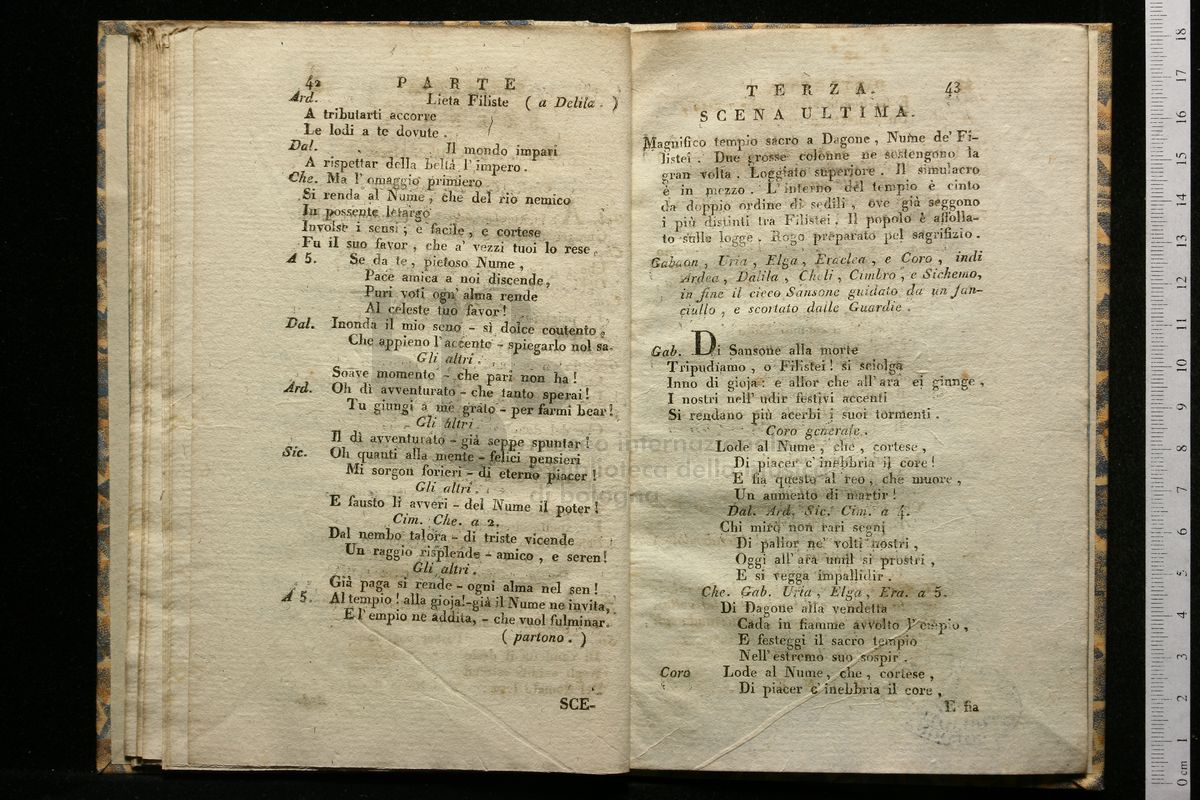 42 PARTE
Ard. Lieta Filiste ( a Delila . )
A tributarti accorre
Le lodi a te dovute .
Dal. Il mondo impari
A rispettar della beltà l'impero .
Che. Ma l'omaggio primiero
Si renda al Nume, che del rio nemico
In possente letargo
Involse i sensi ; e facile , e cortese
Fu il suo favor , che a' vezzi tuoi lo rese .
A 5. Se da te , pietoso Nume ,
Pace amica a noi discende,
Puri voti ogn' alma rende
Al celeste tuo favor !
Dal. Inonda il mio seno - sì dolce contento ,
Che appieno l'accento - spiegarlo nol sa.
Gli altri .
Soave momento - che pari non ha !
Ard. Oh dì avventurato - che tanto sperai !
Tu giungi a me grato - per farmi bear !
Gli altri .
Il dì avventurato - già seppe spuntar !
Sic. Oh quanti alla mente - felici pensieri
Mi sorgon forieri - di eterno piacer !
Gli altri .
E fausto li avveri - del Nume il poter !
Cim. Che. a 2.
Dal nembo talora - di triste vicende
Un raggio risplende - amico , e seren!
Gli altri .
Già paga si rende - ogni alma nel sen !
A 5. Al tempio ! alla gioja!-già il Nume ne invita,
E l'empio ne addita, - che vuol fulminar.
( partono . )
SCE-
TERZA. 43
SCENA ULTIMA.
Magnifico tempio sacro a Dagone , Nume de' Fi-
listei . Due grosse colonne ne sostengono la
gran volta . Loggiato superiore . Il simulacro
è in mezzo . L'interno del tempio è cinto
da doppio ordine di sedili , ove già seggono
i più distinti tra Filistei . Il popolo è affolla-
to sulle logge . Rogo preparato pel sagrifizio .
Gabaon , Uria , Elga , Eraclea , e Coro , indi
Ardea , Dalila , Cheli , Cimbro , e Sichemo,
in fine il cieco Sansone guidato da un fan-
ciullo , e scortato dalle Guardie .
Gab. Di Sansone alla morte
Tripudiamo , o Filistei ! si sciolga
Inno di gioja : e allor che all'ara ei giunge ,
I nostri nell' udir festivi accenti
Si rendano più acerbi i suoi tormenti .
Coro generale .
Lode al Nume , che , cortese ,
Di piacer c'inebbria il core !
E fia questo al reo , che muore ,
Un aumento di martir !
Dal. Ard. Sic. Cim. a 4.
Chi mirò non rari segni
Di pallor ne' volti nostri ,
Oggi all' ara umil si prostri ,
E si vegga impallidir .
Che. Gab. Uria , Elga , Era. a 5.
Di Dagone alla vendetta
Cada in fiamme avvolto l'empio ,
E festeggi il sacro tempio
Nell'estremo suo sospir .
Coro Lode al Nume, che , cortese ,
Di piacer c'inebbria il core ,
E fia